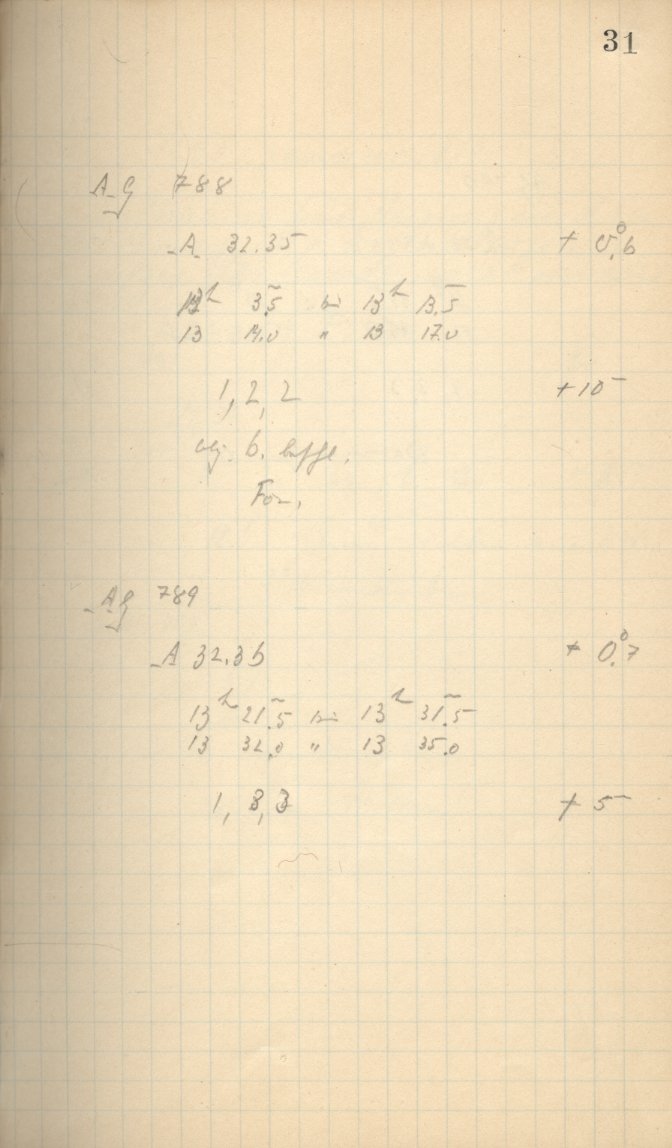 31
AG 788
A 32.35 + 0°.6
13h 3m.5 bis 13h 13m.5
13 14.0 " 13 17.0
1, 2, 2 + 10
obj. b.
For.
AG 789
A 32.36 + 0°.7
13h 21m.5 bis 13h 31m.5
13 32.0 " 13 35.0
1, 3, 3 + 5